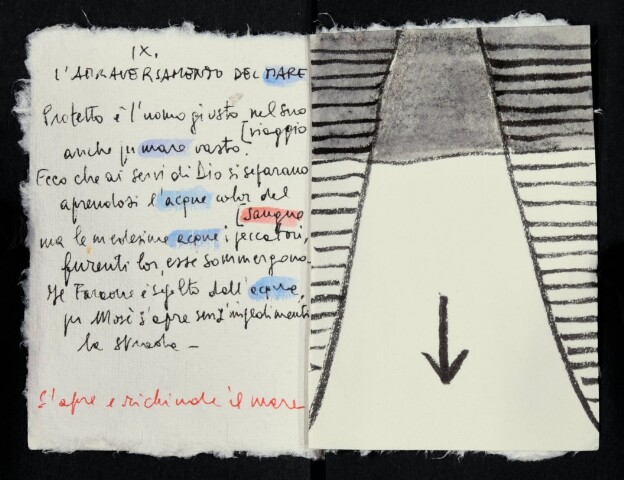 IX.
L'ATTRAVERSAMENTO DEL MARE
Protetto è l'uomo giusto nel suo
[viaggio
anche pur mare vasto.
Ecco che ai servi di Dio si separano
aprendosi l'acque color del
[sangue
ma le medesime acque i peccatori,
furenti lor, esse sommergono.
Il Faraone è sepolto dall'acque,
pu Mosè s'apre senz'impedimenti
la strada –
S'apre e richiude il mare